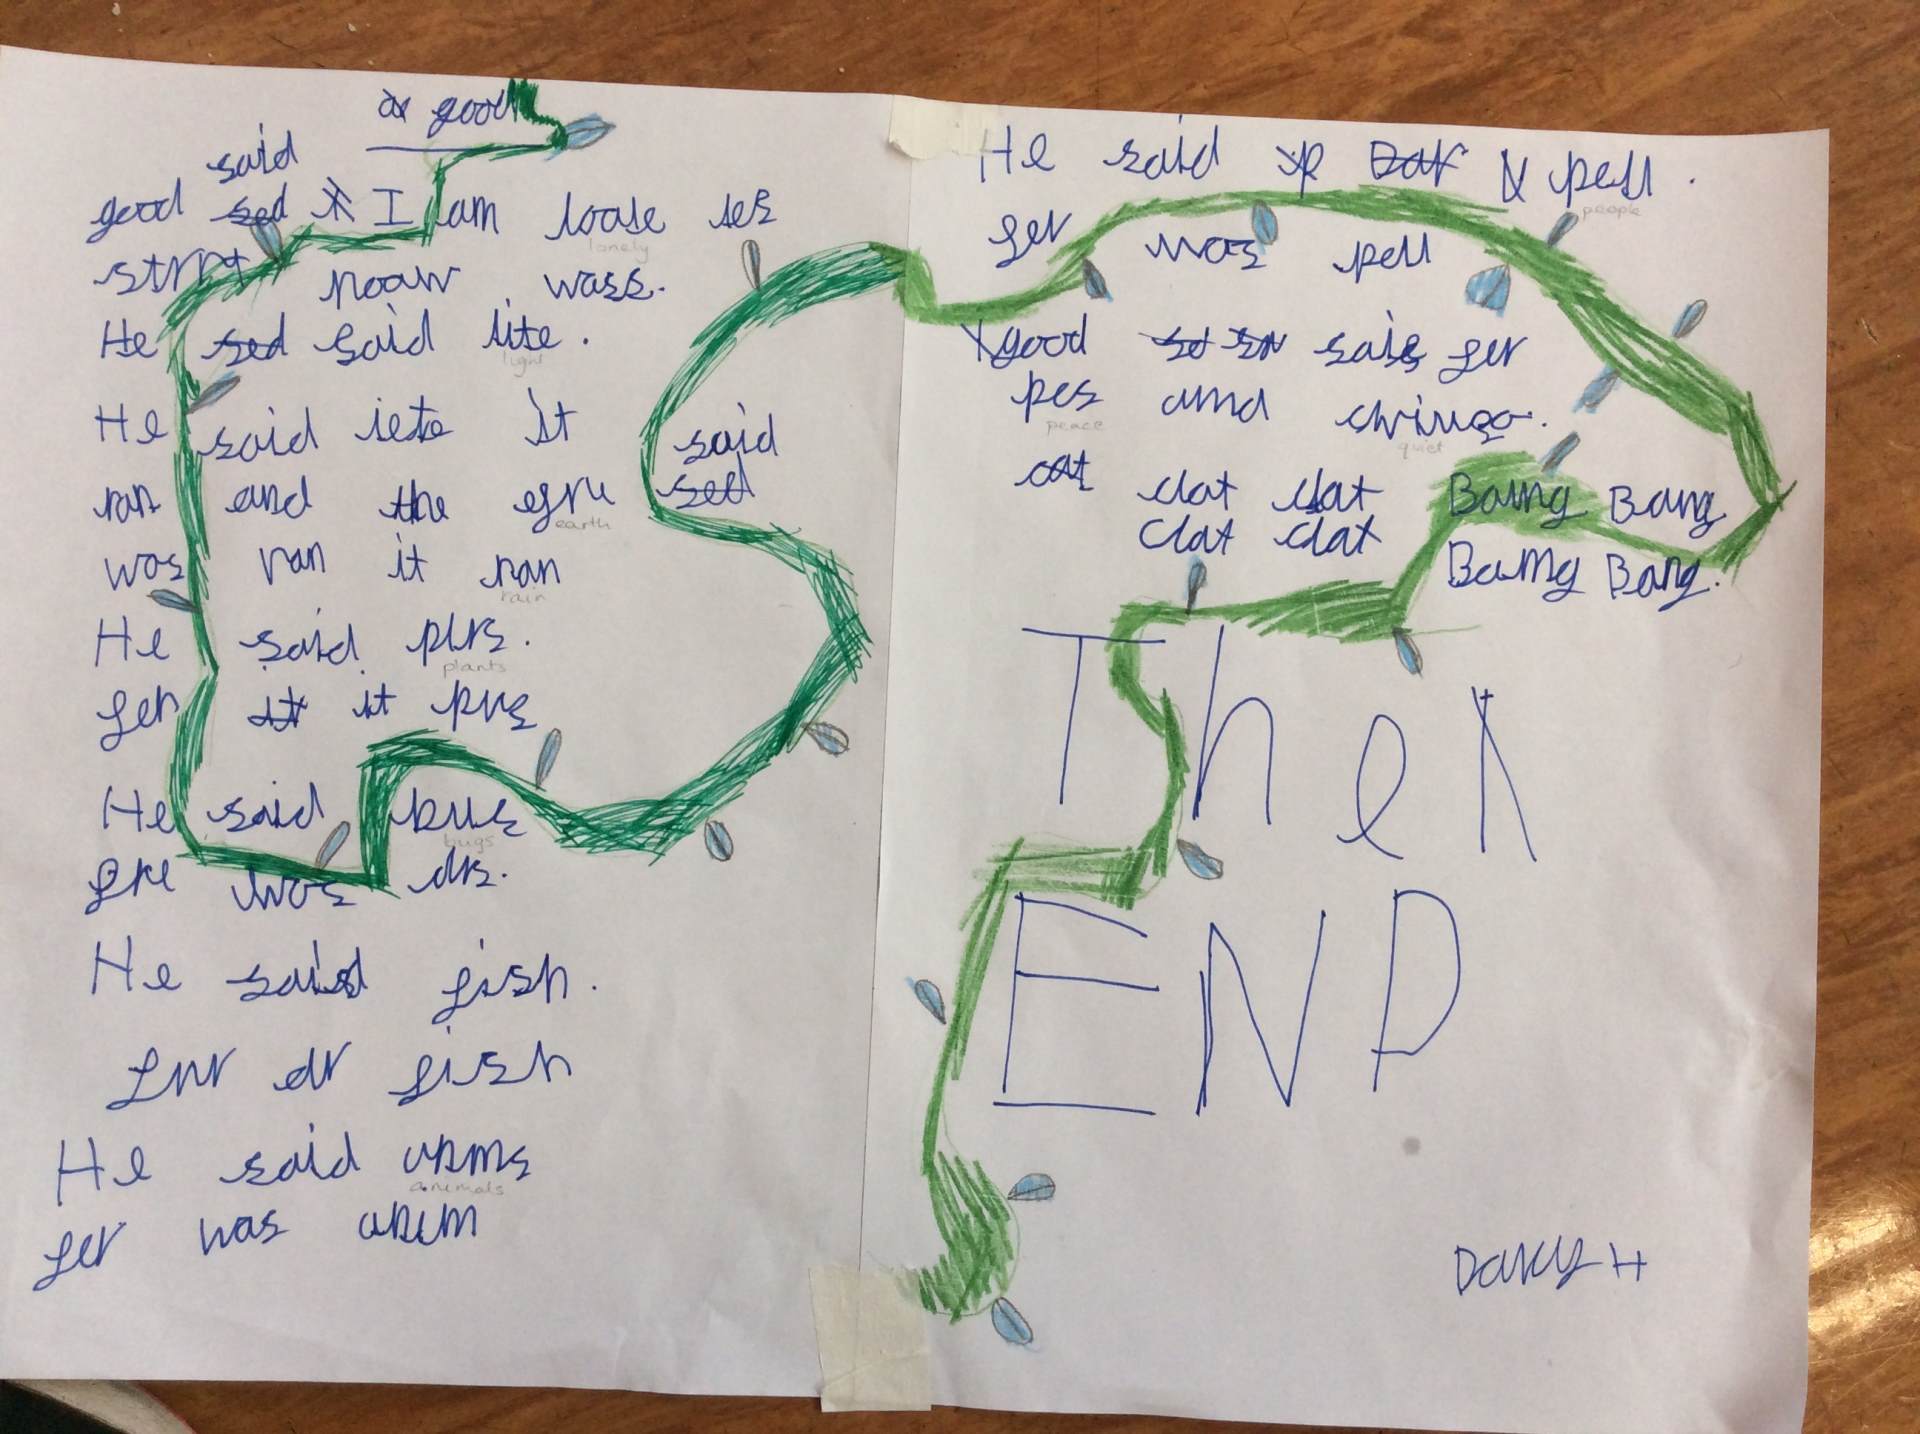 good
said
good sed I am loose ses
lonely
strrt noaw wass.
He sed said lite.
light
He said lete it said
ran and the efru sed
earth
was ran it ran
rain
He said plrs.
plants
fer it it prs
He said bus
bugs
fre was drs.
He said fish.
fnr dr fish
He said anms
animals
fer was anim
He said pell.
people
fer was pell
good said fer
pes and chriugo.
peace quiet
cat clat clat Bamg Bang
clat clat Bamg Bang.
The
END
Darcy H